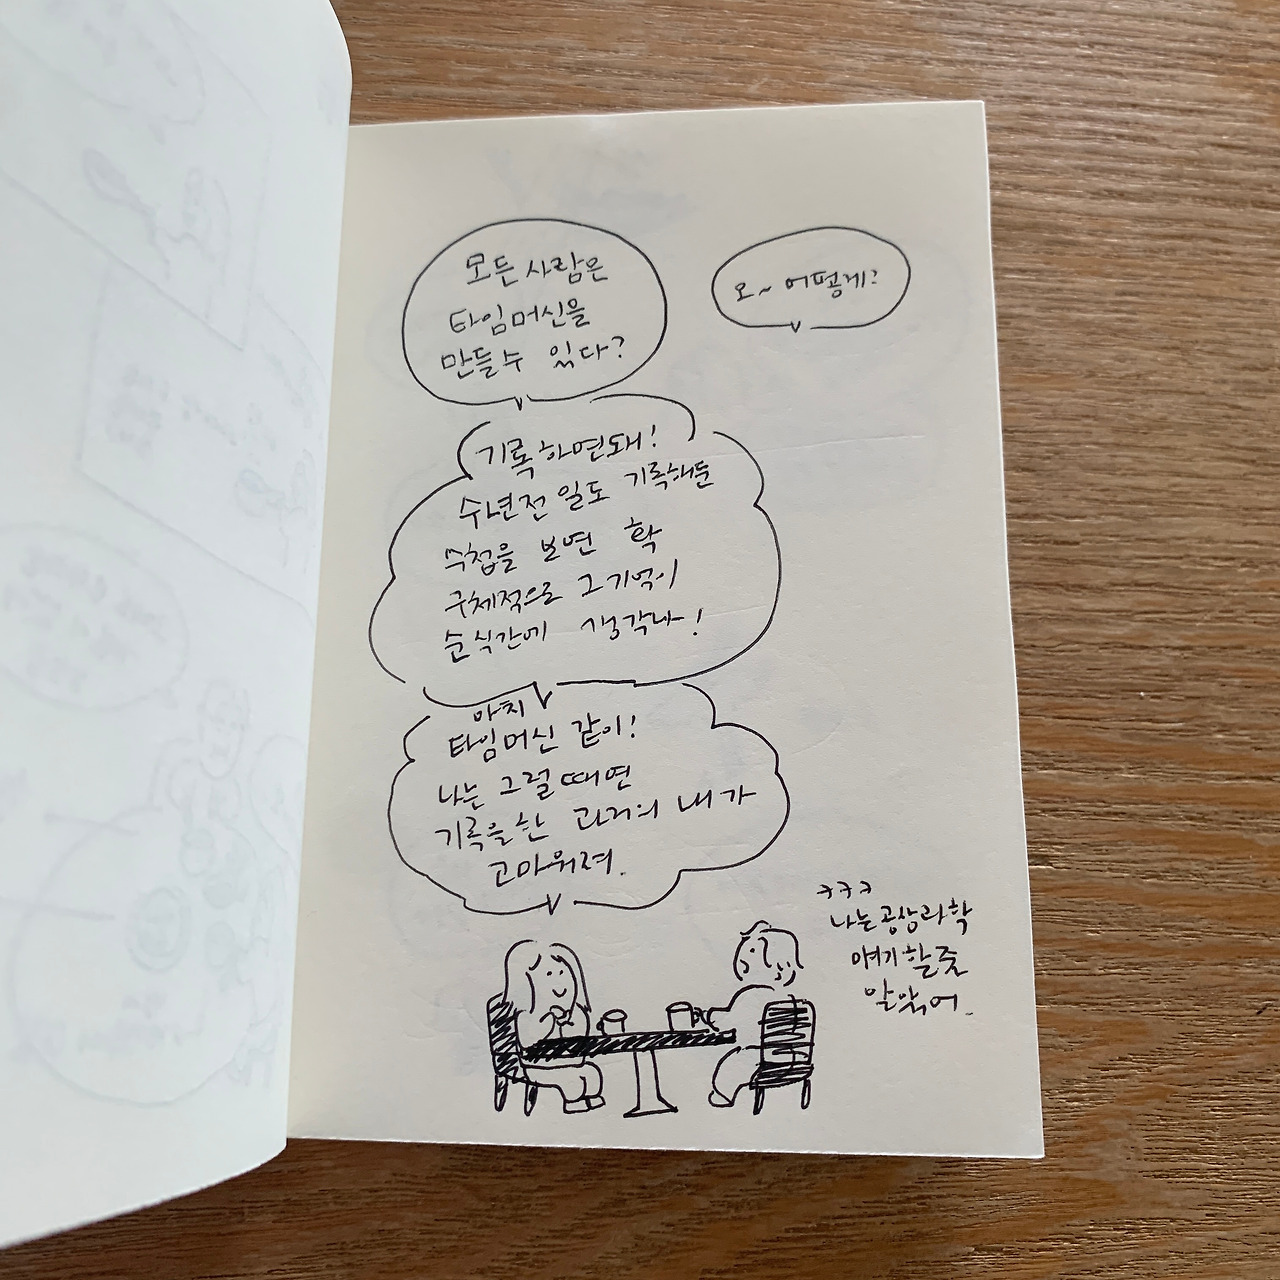 모든 사람은
타임머신을
만들수 있다?
오~ 어떻게?
기록하면돼!
수년전 일도 기록해둔
수첩을 보면 확
구체적으로 그 기억이
순식간에 생각나!
마치
타임머신 같이!
나는 그럴때면
기록을한 과거의 내가
고마워져.
ㅋㅋㅋ
나는공상과학
얘기할줄
알았어.